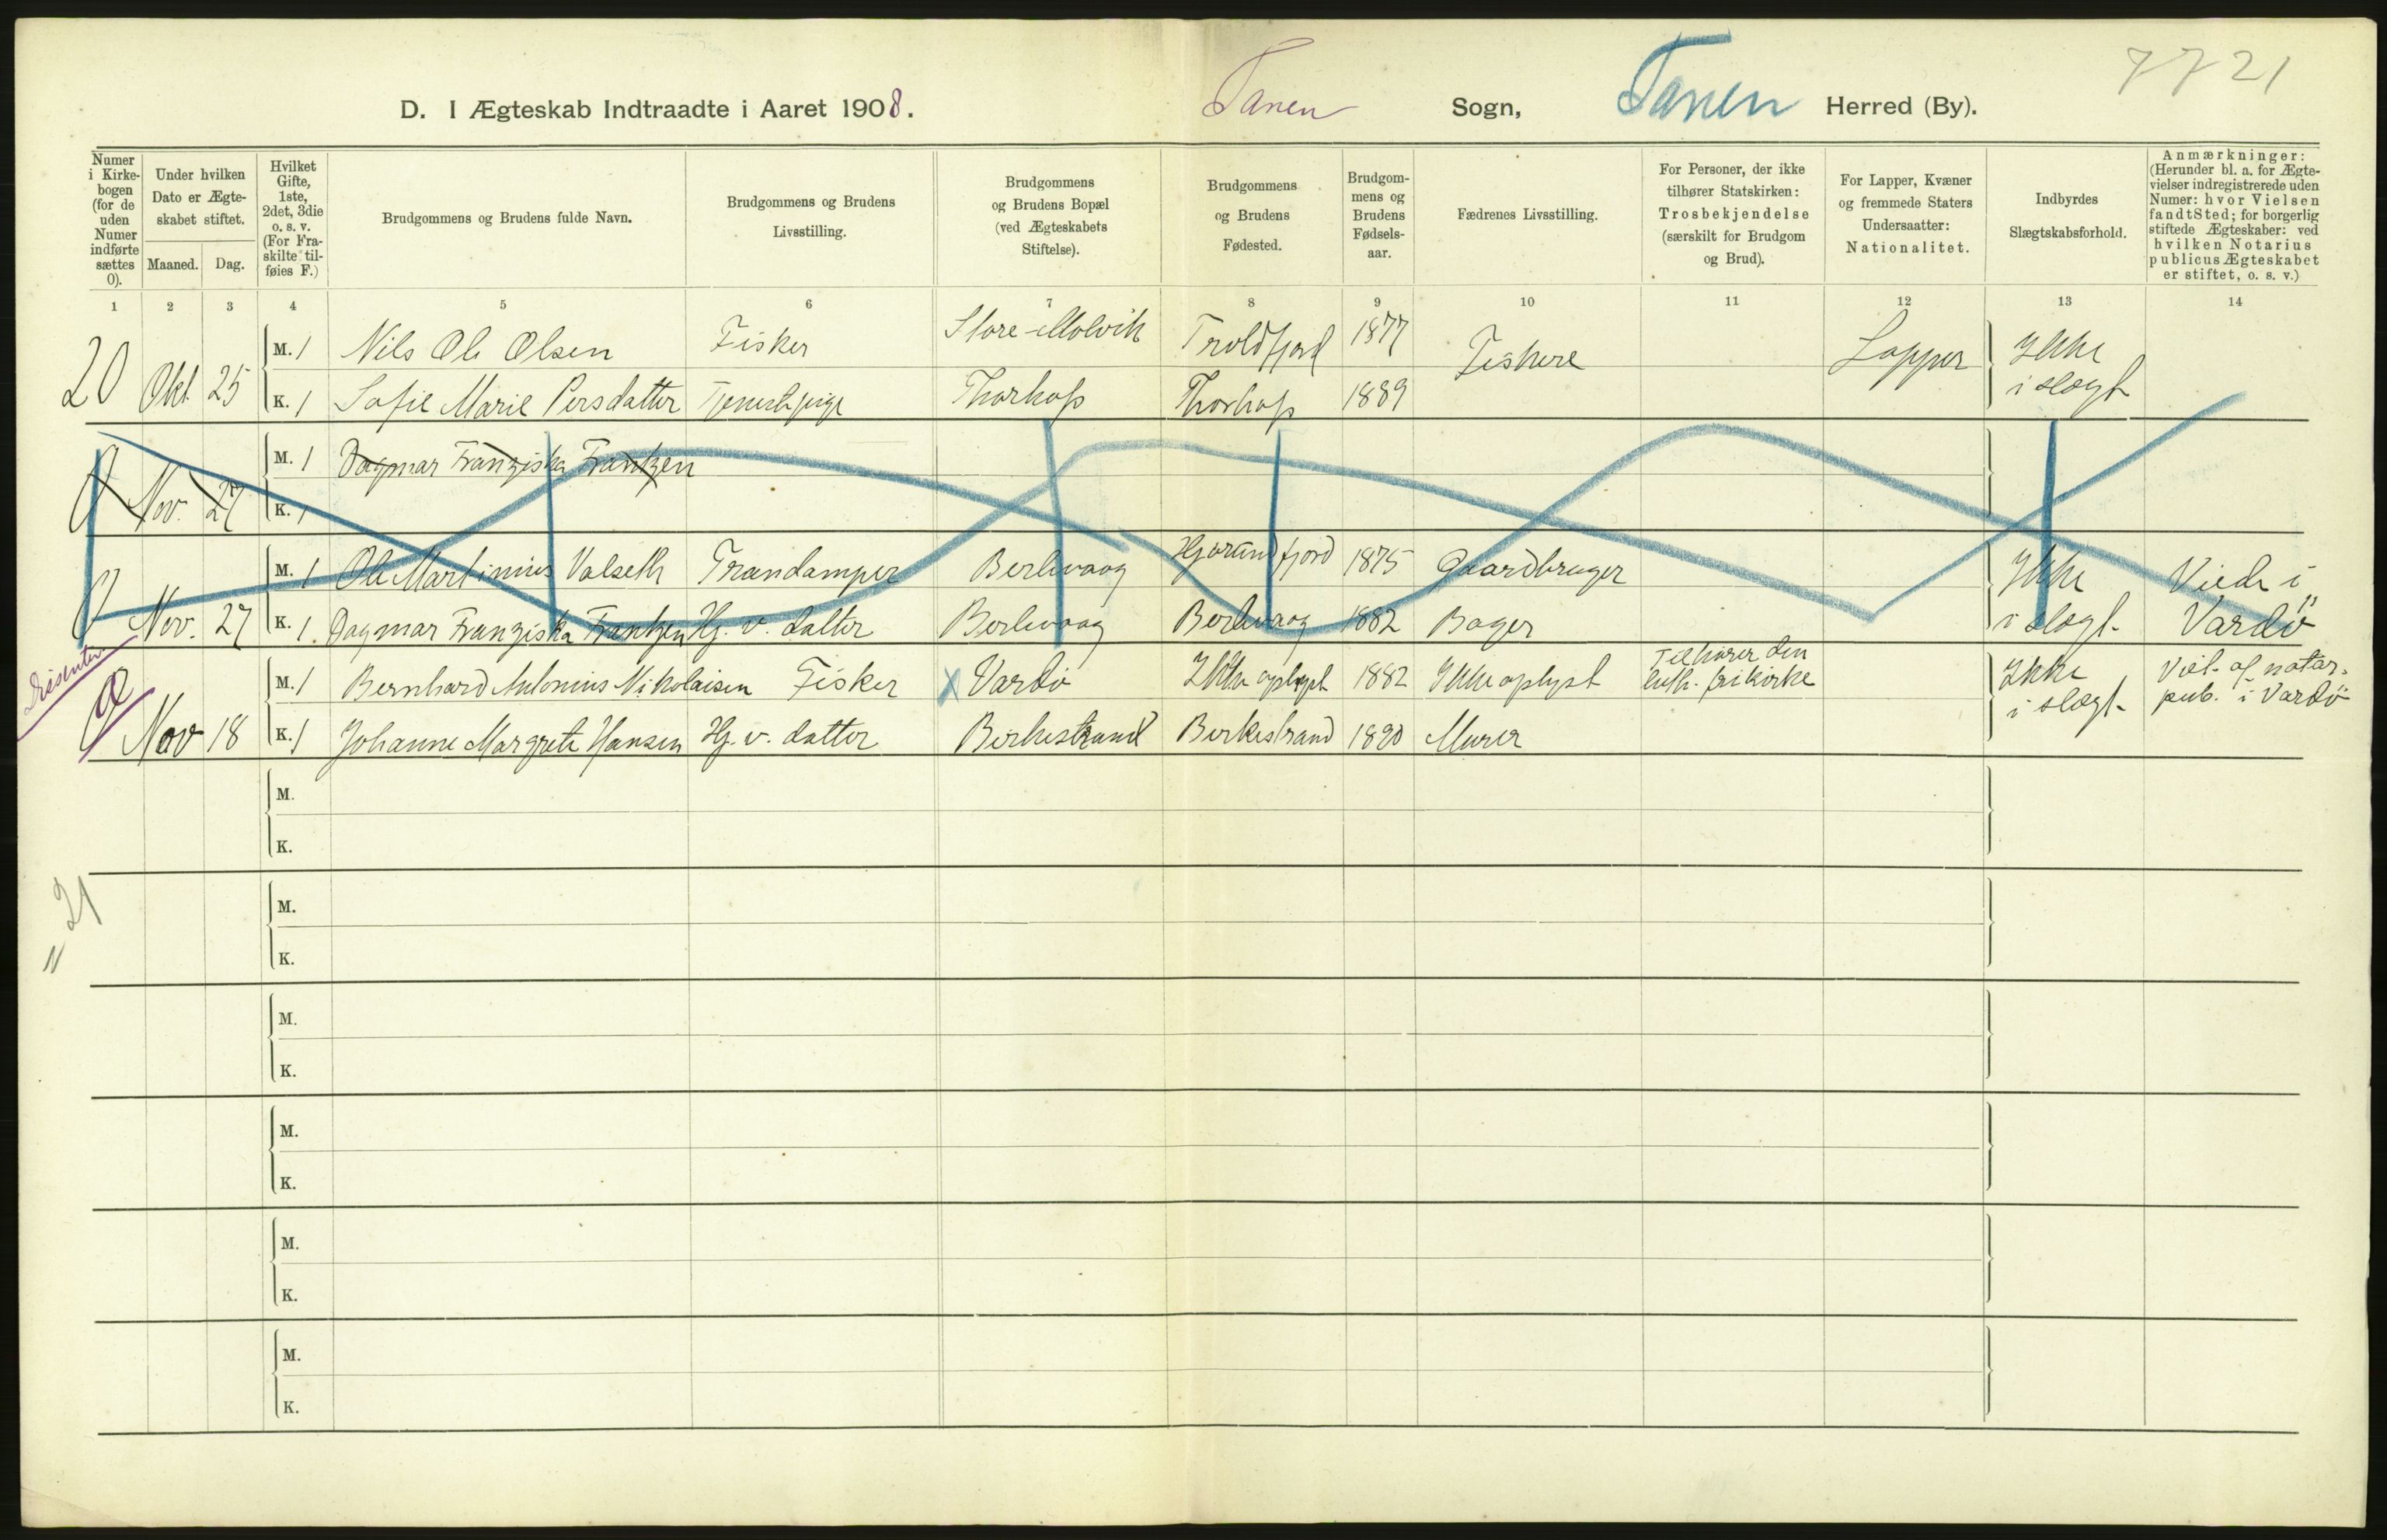 7721
D. I Ægteskab Indtraadte i Aaret 1908. Tanen Sogn, Tanen Herred (By).
Numer i Kirke-bogen (for de uden Numer indførte sættes 0).
Under hvilken Dato er Ægte-skabet stiftet.
Maaned. Dag.
Hvilket Gifte, 1ste, 2det, 3die o. s. v. (For Fra-skilte til-føies F.)
Brudgommens og Brudens fulde Navn.
Brudgommens og Brudens Livsstilling.
Brudgommens og Brudens Bopæl (ved Ægteskabets Stiftelse).
Brudgommens og Brudens Fødested.
Brudgom-mens og Brudens Fødsels-aar.
Fædrenes Livsstilling.
For Personer, der ikke tilhører Statskirken: Trosbekjendelse (særskilt for Brudgom og Brud).
For Lapper, Kvæner og fremmede Staters Undersaatter: Nationalitet.
Indbyrdes Slægtskabsforhold.
Anmærkninger: (Herunder bl. a. for Ægte-vielser indregistrerede uden Numer: hvor Vielsen fandt Sted; for borgerlig stiftede Ægteskaber: ved hvilken Notarius publicus Ægteskabet er stiftet, o. s. v.)
1 2 3 4 5 6 7 8 9 10 11 12 13 14
M. 1 Nils Ole Olsen Fisker Store-Molvik Troldfjord 1877 Fiskere Lapper Ikke
20 Okt. 25 K. 1 Sofie Marie Persdatter Tjenestepige Thorhop Thorhop 1889 i slægt
M. 1 Dagmar Franziska Frantzen
0 Nov. 27 K. 1
M. 1 Ole Martinius Valseth Trandamper Berlevaag Hjørundfjord 1875 Gaardbruger Ikke Viede i
0 Nov. 27 K. 1. Dagmar Franziska Frantzen Hj. v. datter Berlevaag Berlevaag 1882 Bager i slægt. Vardö
Dissenter
M. 1 Bernhard Antonius Nikolaisen Fisker x Vardö Ikke oplyst 1882 Ikke oplyst Tilhører den luth. frikirke Ikke Viet af notar. pub. i Vardö
0 Nov 18 K. 1 Johanne Margrete Hansen Hj. v. datter Birkestrand Birkestrand 1890 Murer i slægt.
M.
K.
= 21
M.
K.
M.
K.
M.
K.
M.
K.
M.
K.